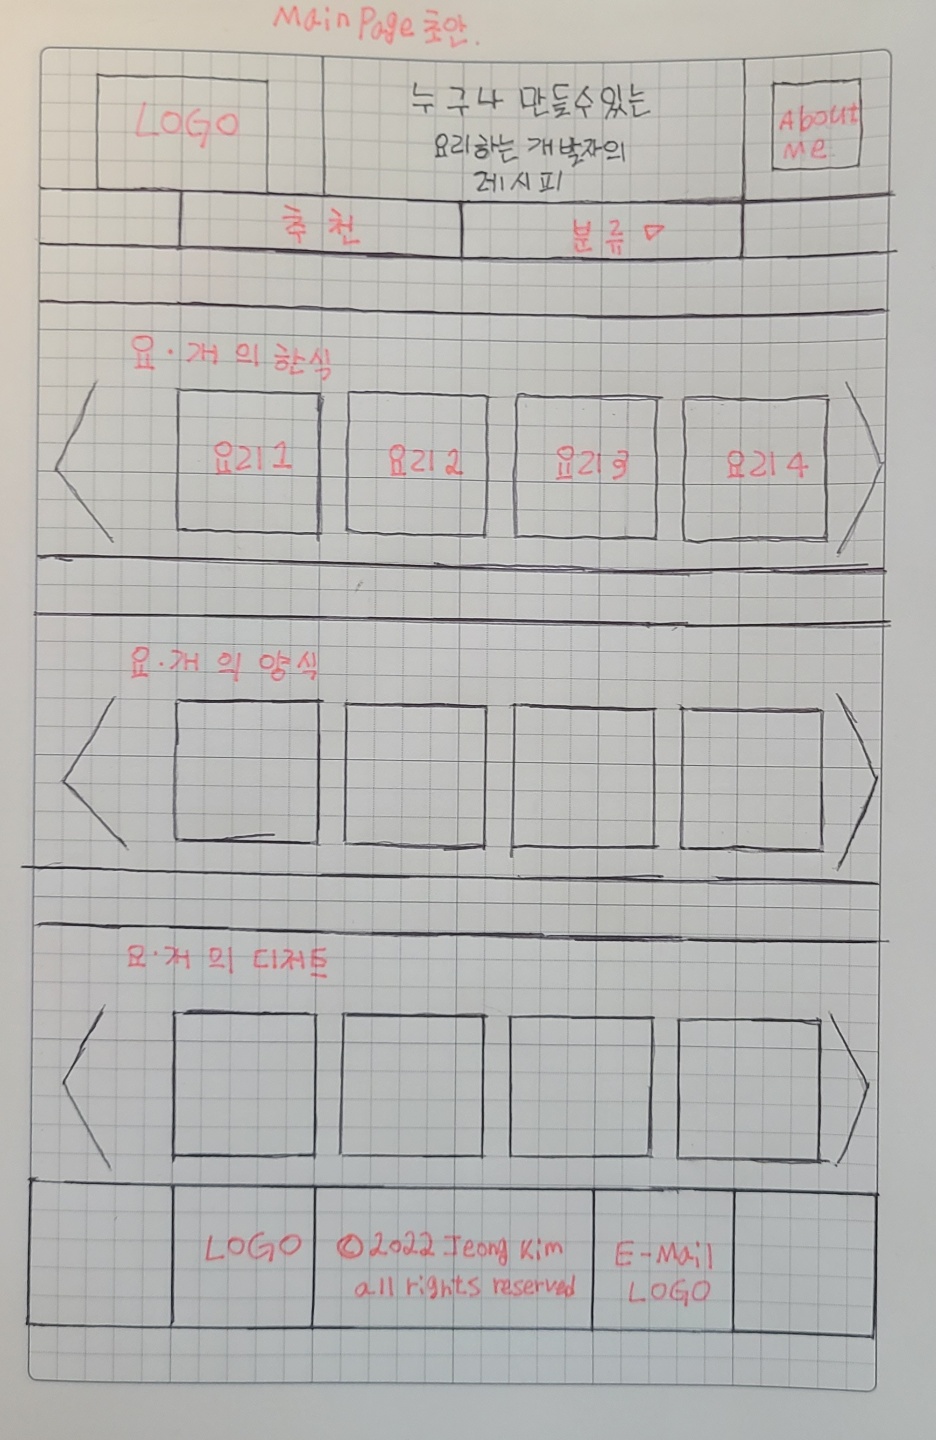 Main Page 초안.
LOGO
누구나 만들수있는
요리하는 개발자의
레시피
About
Me
추천
분류 ▽
요·개의 한식
요리1
요리2
요리3
요리4
요·개의 양식
요·개의 디저트
LOGO
©2022 Jeong Kim
all rights reserved
E-Mail
LOGO